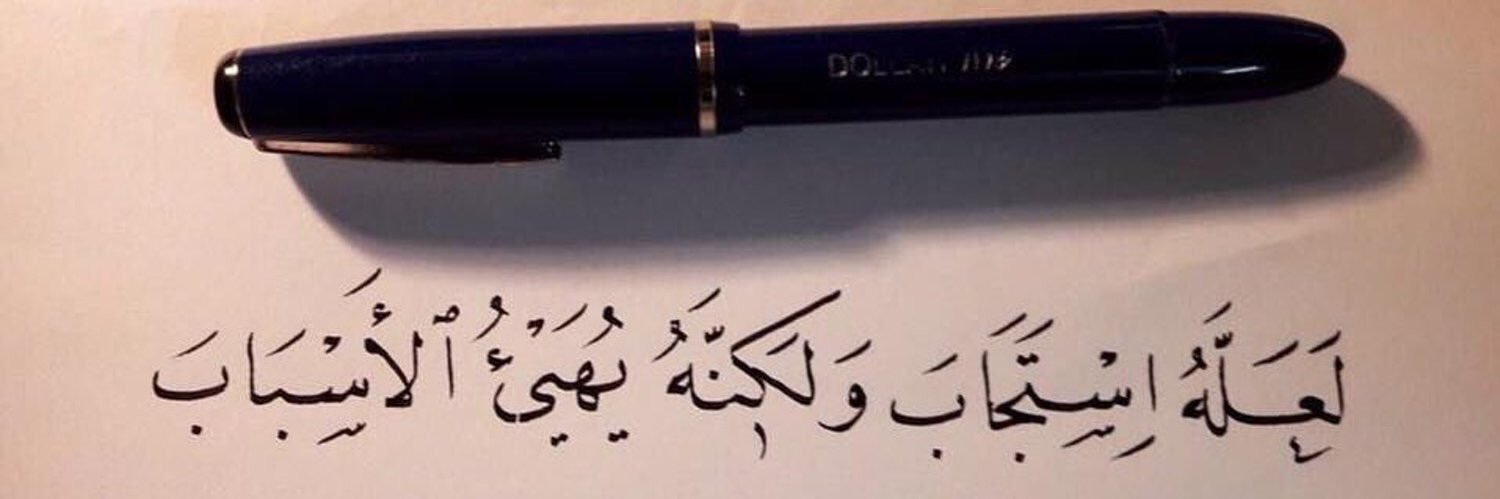 DOLLAR 717
لَعَلَّهُ اِسْتَجَابَ وَلَكِنَّهُ يُهَيْئُ ٱلأَسْبَابَ